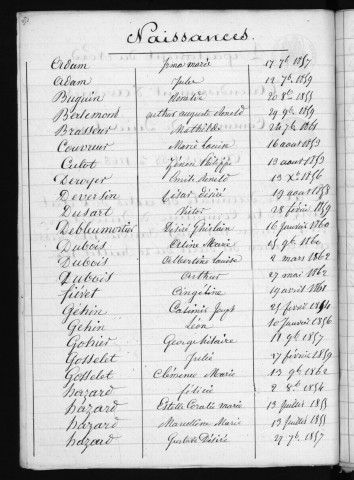 Naissances.
Adam Irma marie 17 7bre 1857
Adam Jules 12 7bre 1859
Buguin Rosalie 20 8bre 1855
Bertemont arthur auguste 29 9bre 1859
Brasseur Mathilde 24 7bre 1861
Couvreur Marie Louise 16 aout 1853
Culot Philippe 13 aout 1853
Deroyer Emile 13 Xbre 1856
Deversin César Désiré 19 aout 1858
Dusart Victor 28 février 1859
Debleumortier Désiré Ghislain 16 janvier 1860
Dubois Celina Marie 15 9bre 1860
Dubois Albertine Louise 2 mars 1862
Dubois Arthur 27 mai 1862
fiévet Angéline 19 avril 1861
Géhin Casimir Joseph 25 février 1854
Géhin Léon 10 Janvier 1856
Gohier George hilaire 11 9bre 1857
Gosselet Julie 27 février 1859
Gosselet Clémence Marie 13 9bre 1862
hazard félicie 2 8bre 1854
hazard Estelle Coralie marie 13 Juillet 1855
hazard Marcelline Marie 13 Juillet 1855
hazard Désirée 27 7bre 1857